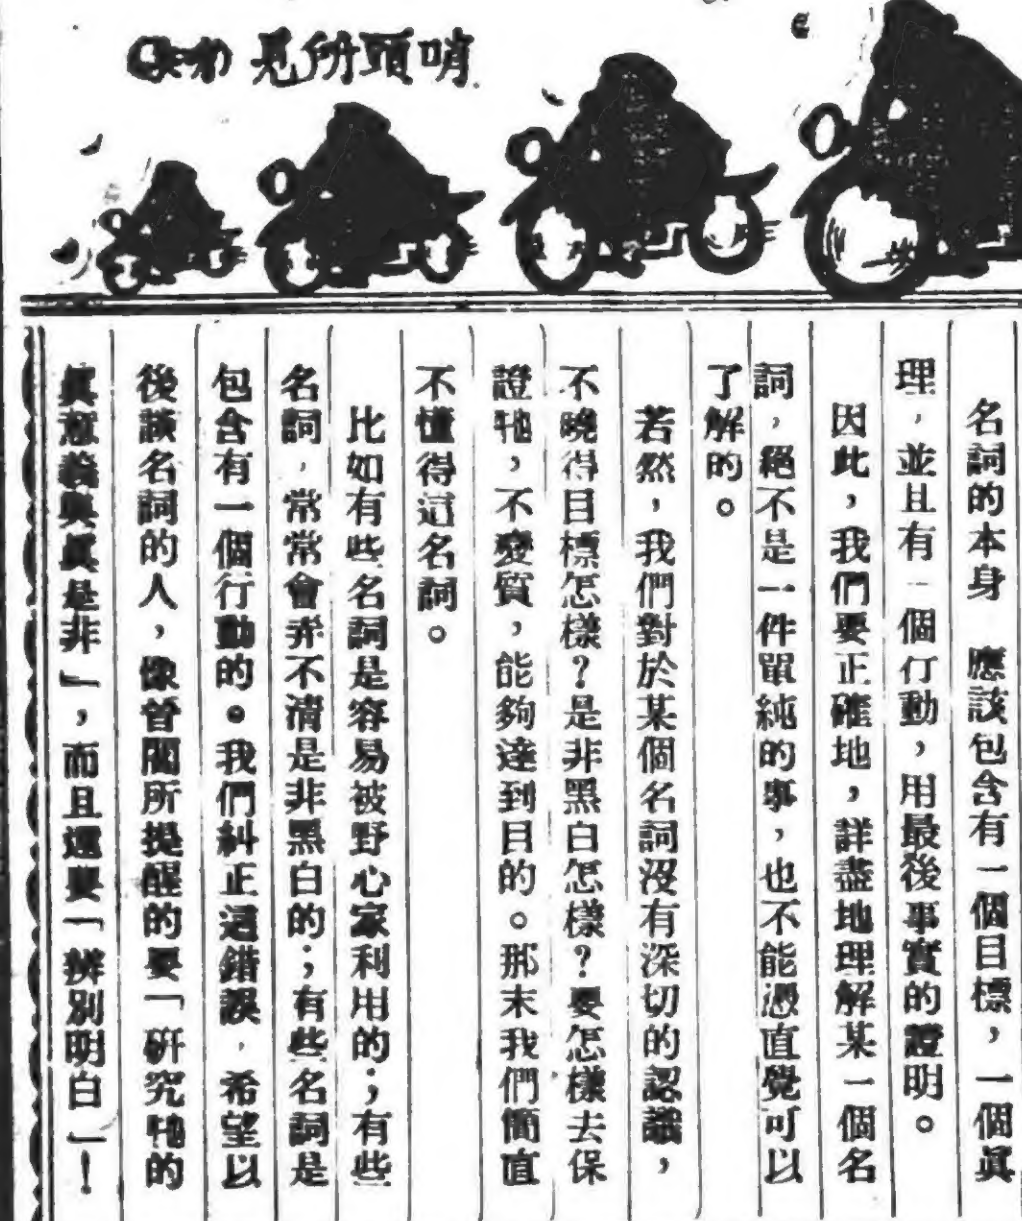 哨頭所見
名詞的本身　應該包含有一個目標，一個眞
理，並且有一個行動，用最後事實的證明。
因此，我們要正確地，詳盡地理解某一個名
詞，絕不是一件單純的事，也不能憑直覺可以
了解的。
若然，我們對於某個名詞沒有深切的認識，
不曉得目標怎樣？是非黑白怎樣？要怎樣去保
證牠，不變質，能夠達到目的。那末我們簡直
不懂得這名詞。
比如有些名詞是容易被野心家利用的；有些
名詞，常常會弄不清是非黑白的；有些名詞是
包含有一個行動的。我們糾正這錯誤，希望以
後談名詞的人，像曾閣所提醒的要「硏究牠的
眞意義與眞是非」，而且還要「辨別明白」！